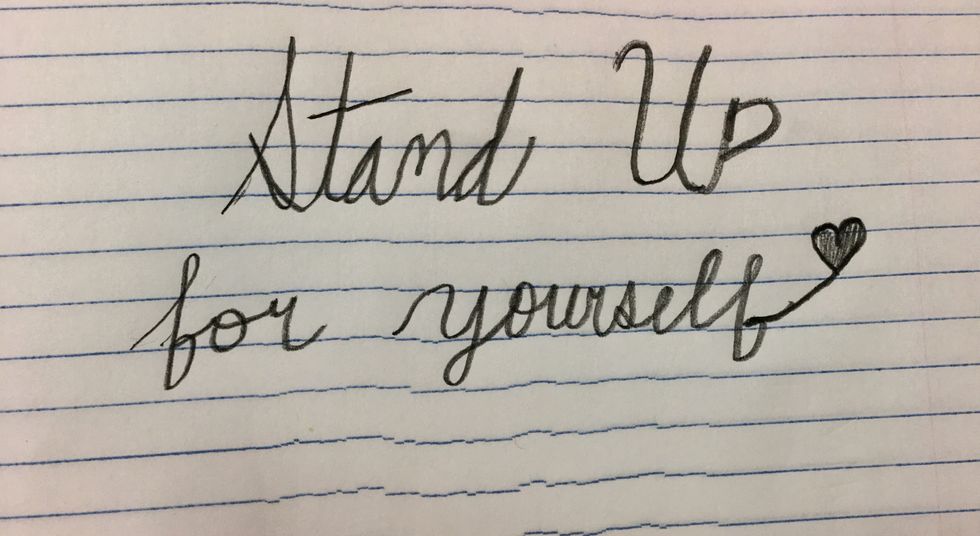 Stand Up
for yourself